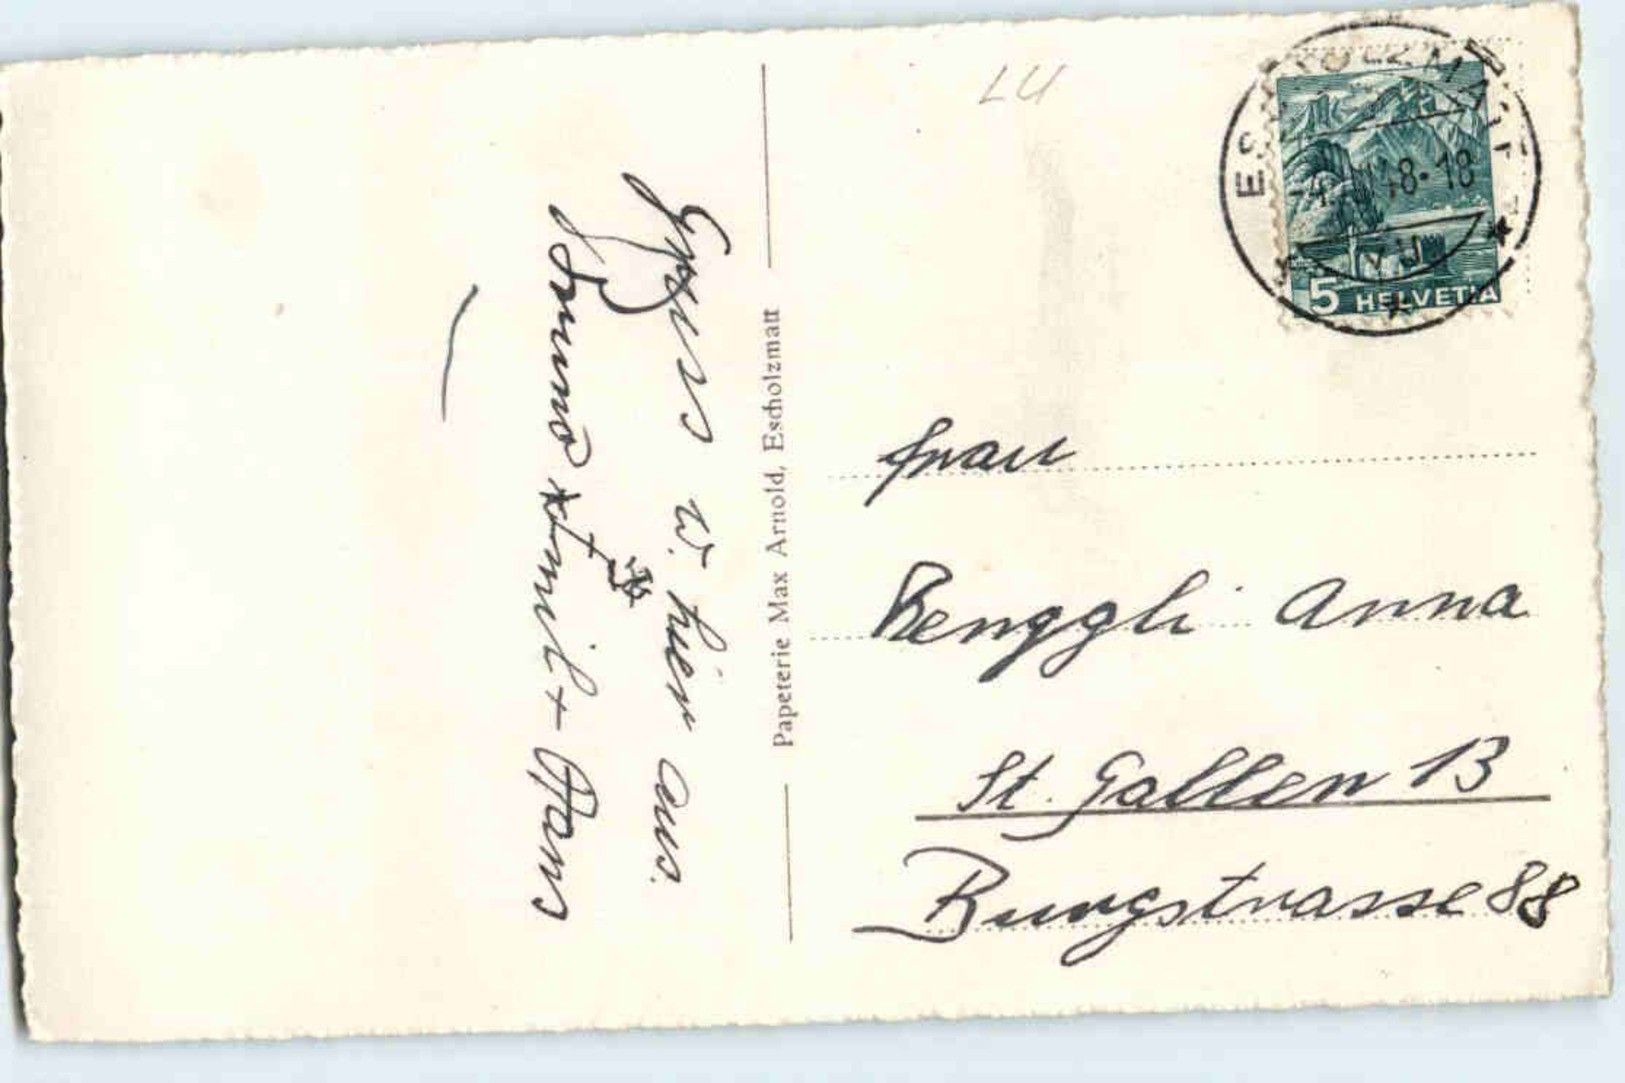 Gruss v. hier aus.
Bruno Emil + Hans
Papeterie Max Arnold, Escholzmatt
LU
ESCHOLZMATT
48-18
5 HELVETIA
Frau
Renggli Anna
St. Gallen 13
Burgstrasse 88